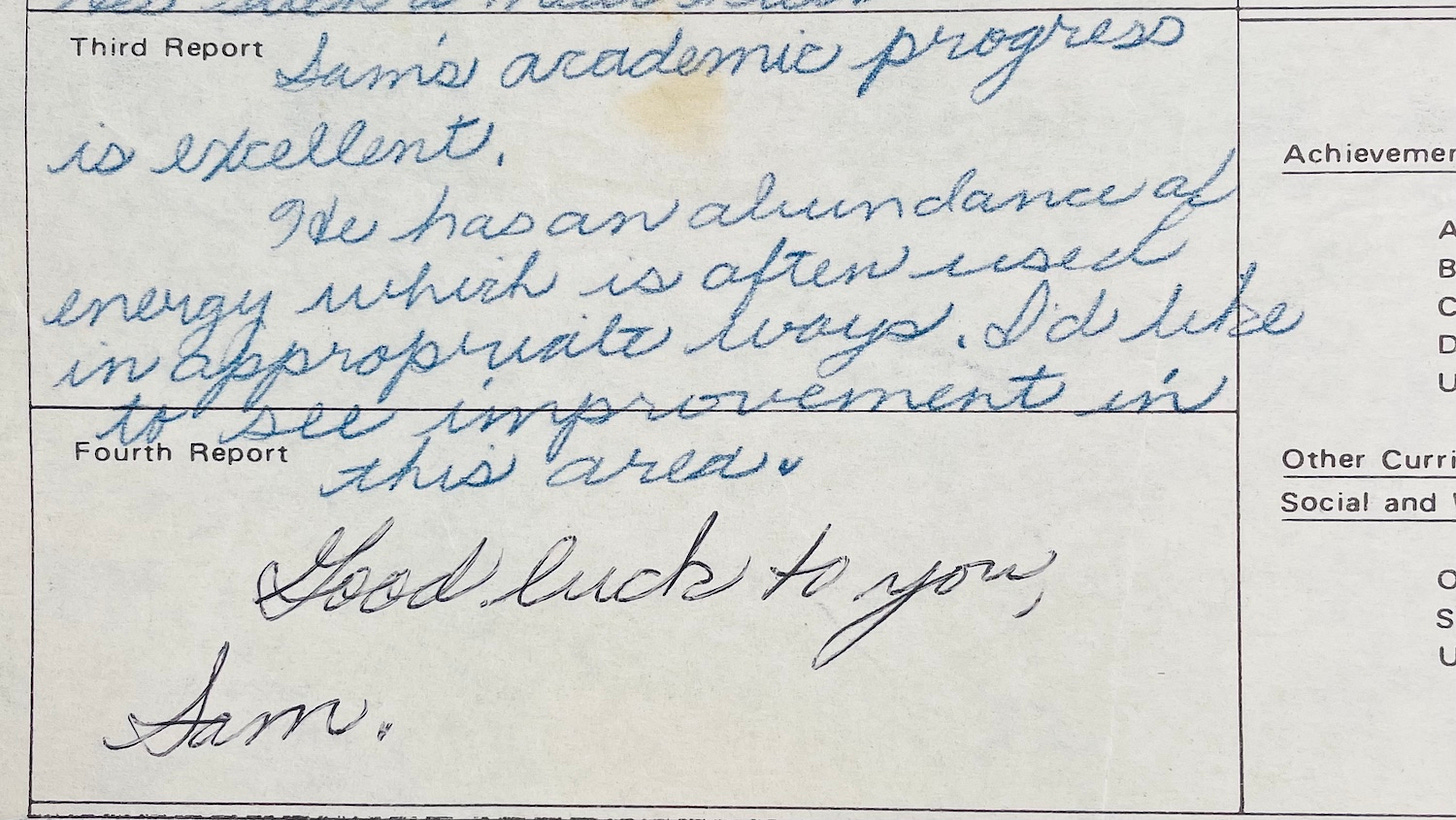 Third Report Sam's academic progress
is excellent.
He has an abundance of
energy which is often used
in appropriate ways. I'd like
to see improvement in
Fourth Report this area.
Good luck to you,
Sam.
Achievemen
A
B
C
D
U
Other Curri
Social and W
O
S
U